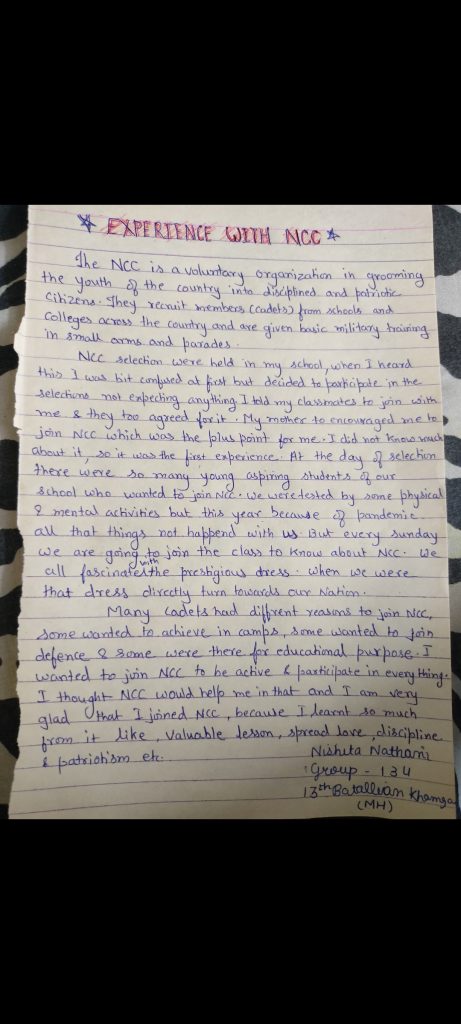 ☆ EXPERIENCE WITH NCC ☆
The NCC is a voluntary organization in grooming
the youth of the country into disciplined and patriotic
Citizens. They recruit members (cadets) from schools and
Colleges across the country and are given basic military training
in small arms and parades.
NCC selection were held in my school, when I heard
this I was bit confused at first but decided to participate in the
selections not expecting anything I told my classmates to join with
me & they too agreed for it. My mother to encouraged me to
join NCC which was the plus point for me. I did not know much
about it, so it was the first experience. At the day of selection
there were so many young aspiring students of our
school who wanted to join NCC. We were tested by some physical
& mental activities but this year because of pandemic
all that things not happend with us. But every sunday
we are going to join the class to know about NCC. We
all fascinates with the prestigious dress. when we were
that dress directly turn towards our Nation.
Many cadets had diffrent reasons to join NCC,
some wanted to achieve in camps, some wanted to join
defence & some were there for educational purpose. I
wanted to join NCC to be active & participate in every thing.
I thought NCC would help me in that and I am very
glad that I joined NCC, because I learnt so much
from it like, valuable lesson, spread love, discipline
& patriotism etc.
Nishita Nathani
Group - 134
13th Batallian Khamga
(MH)